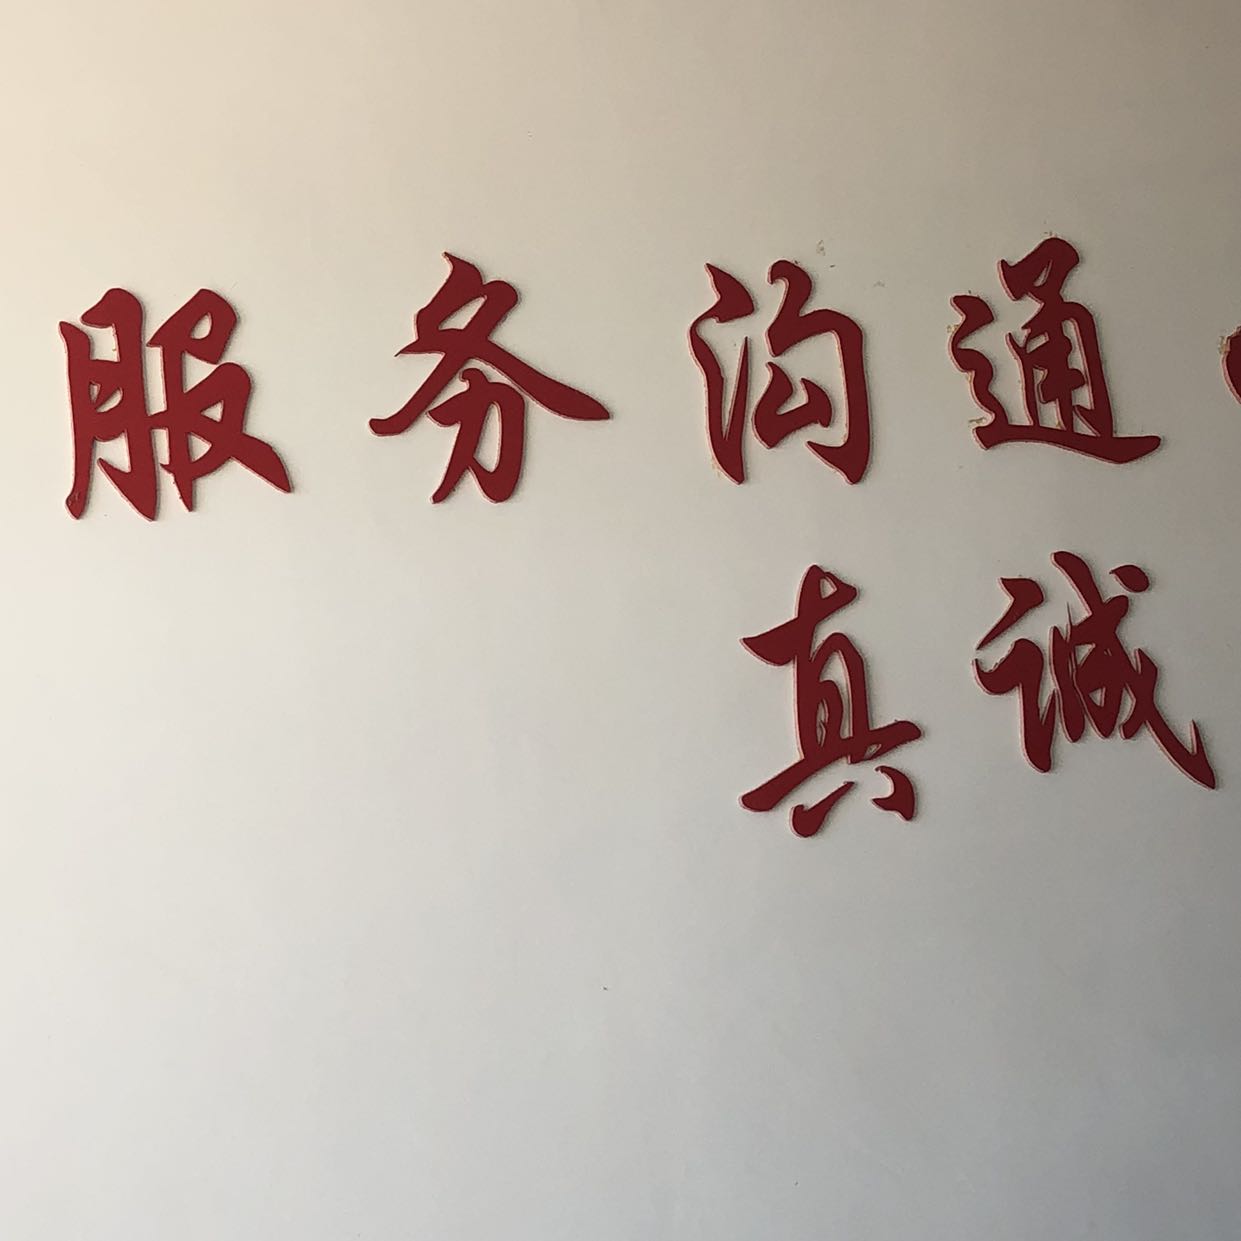 服务沟通
真诚